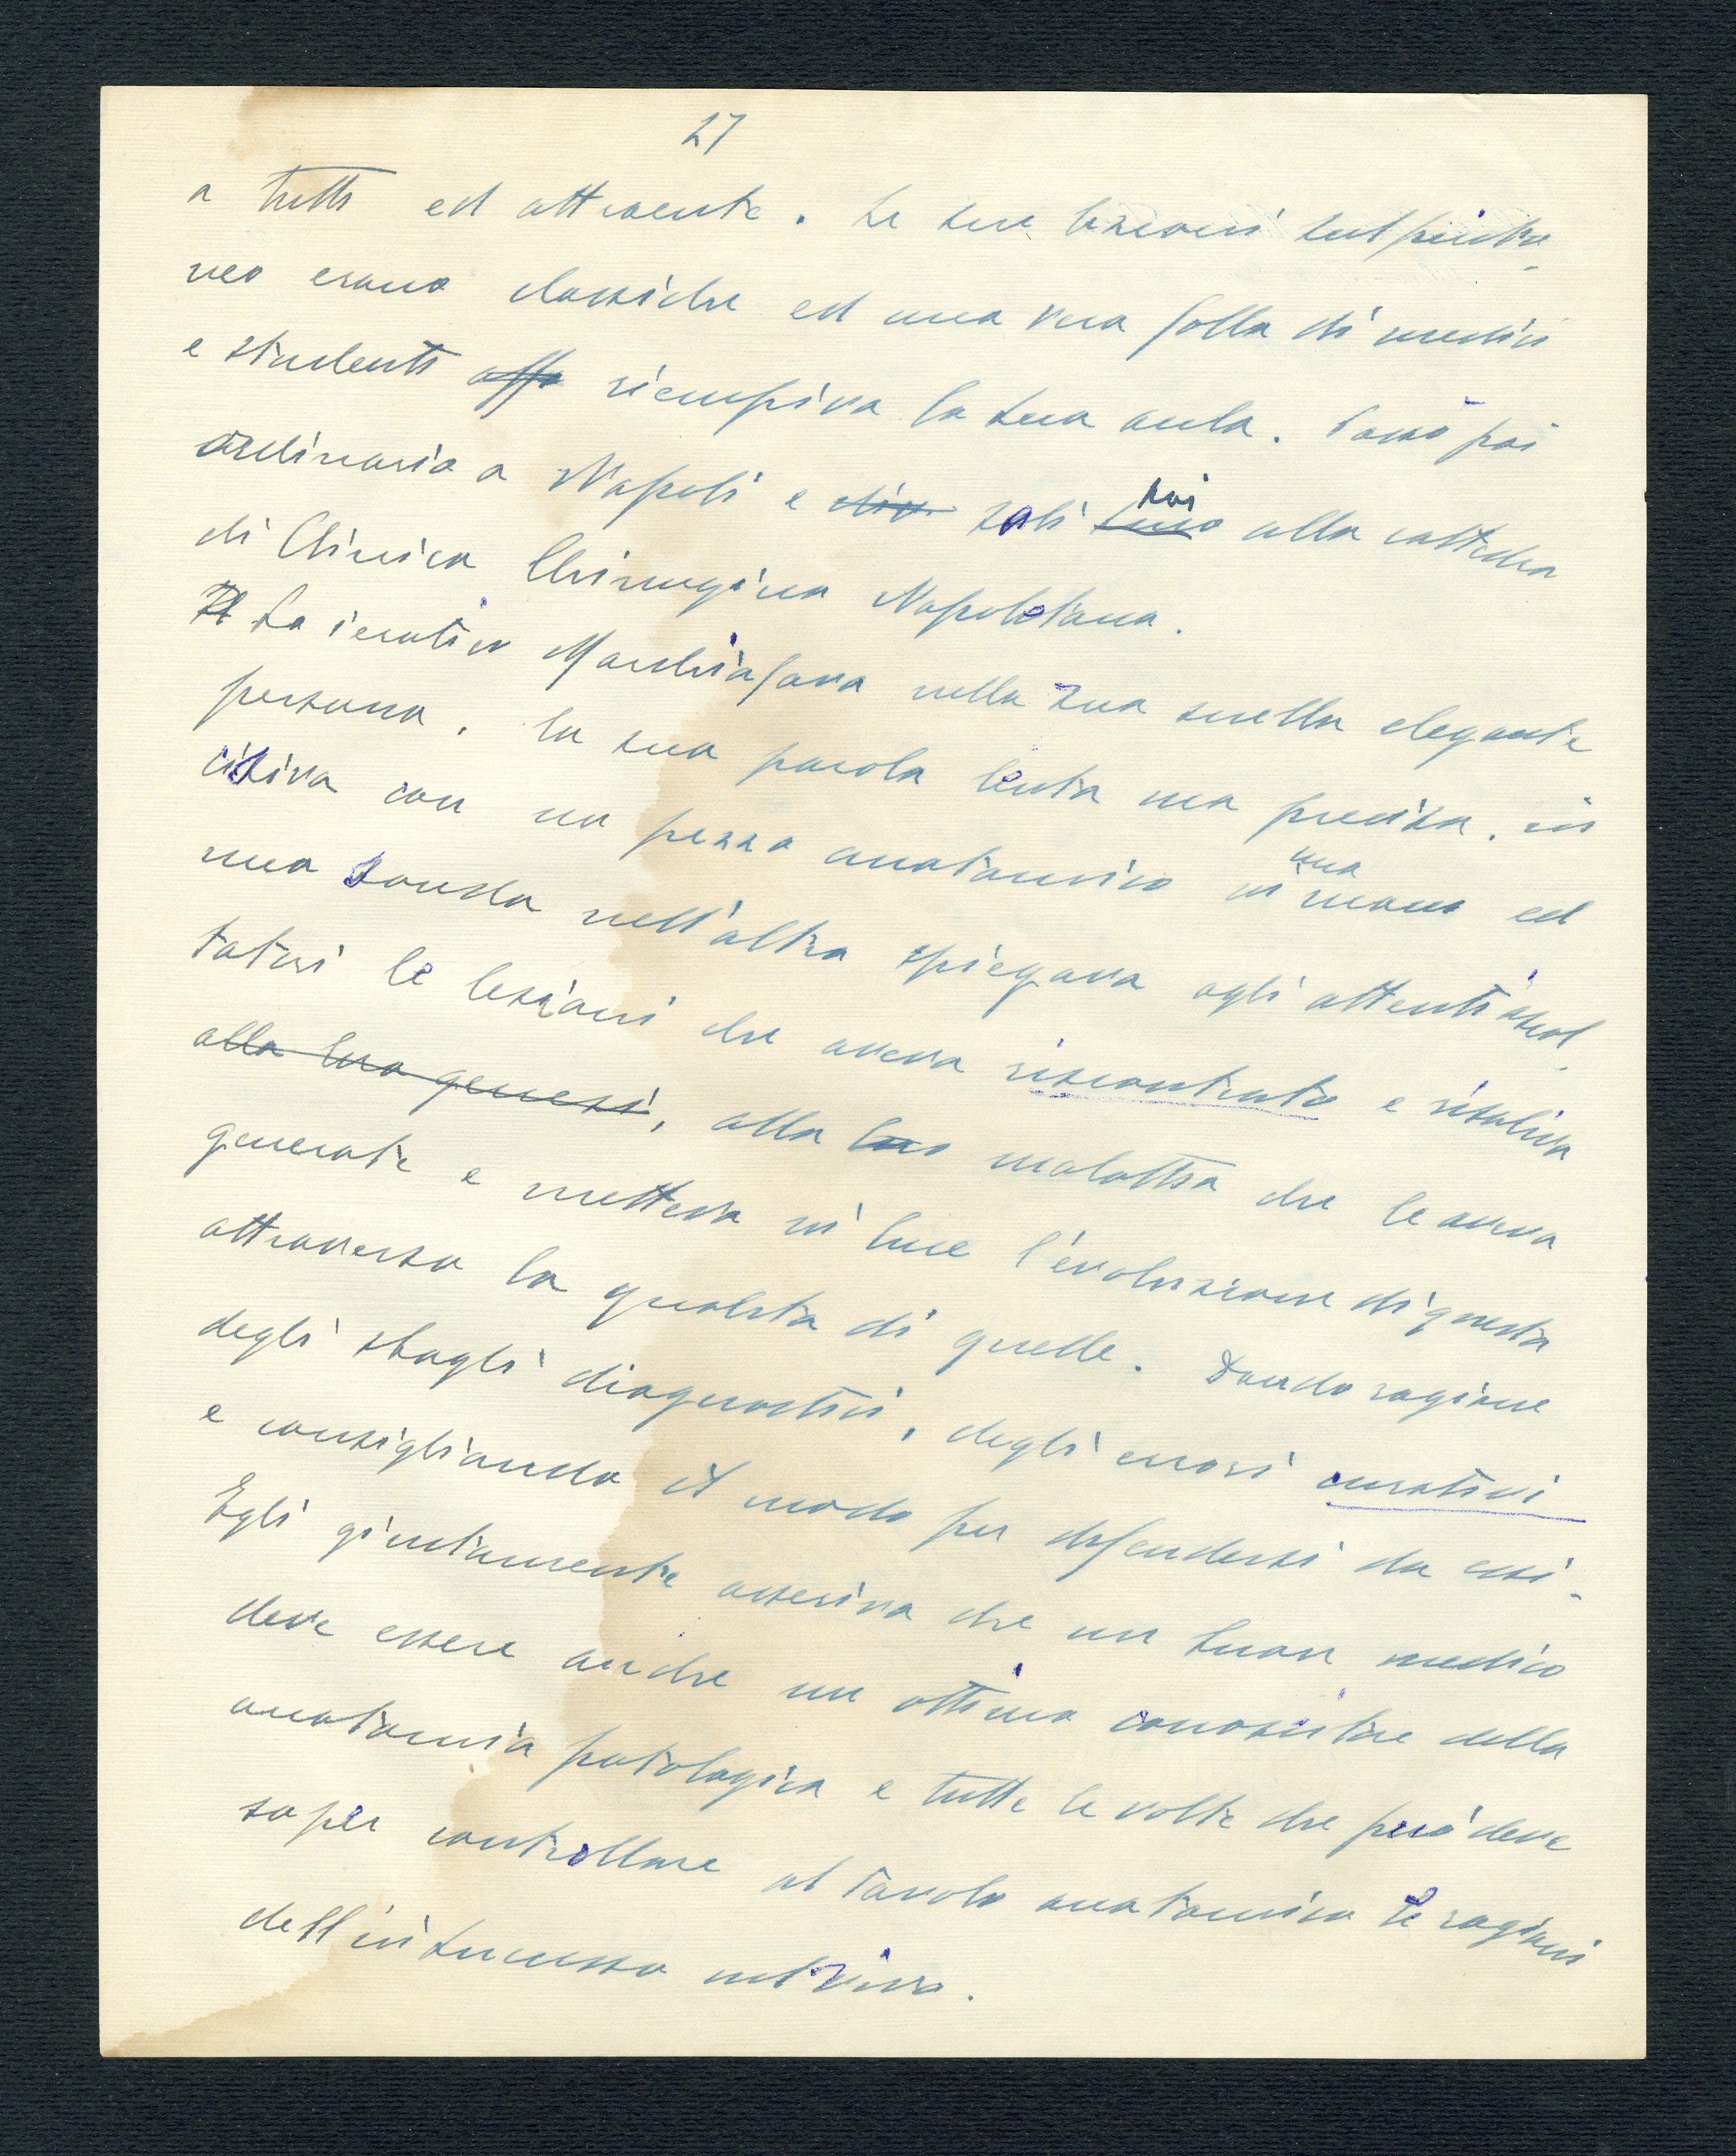 27
a tutti ed attraente. Le sue lezioni sul perito-
neo erano classiche ed una vera folla di medici
e studenti affo riempiva la sua aula. Passò poi
ordinario a Napoli e div salì suo poi alla cattedra
di Clinica Chirurgica Napoletana.
Il Lo ieratico Marchiafava nella sua snella elegante
persona, la sua parola lenta ma precisa, in
cisiva con un pezzo anatomico in una mano ed
una sonda nell'altra spiegava agli attenti ascol
tatori le lezioni che aveva riscontrato e risaliva
alla loro genesi, alla loro malattia che le aveva
generate e metteva in luce l'evoluzione di questa
attraverso la qualità di quelle. Dando ragione
degli sbagli diagnostici, degli errori curativi
e consigliando il modo per difendersi da essi.
Egli giustamente asseriva che un buon medico
deve essere anche un ottimo conoscitore della
anatomia patologica e tutte le volte che può deve
saper controllare al tavolo anatomico le ragioni
dell'insuccesso nel vivo.